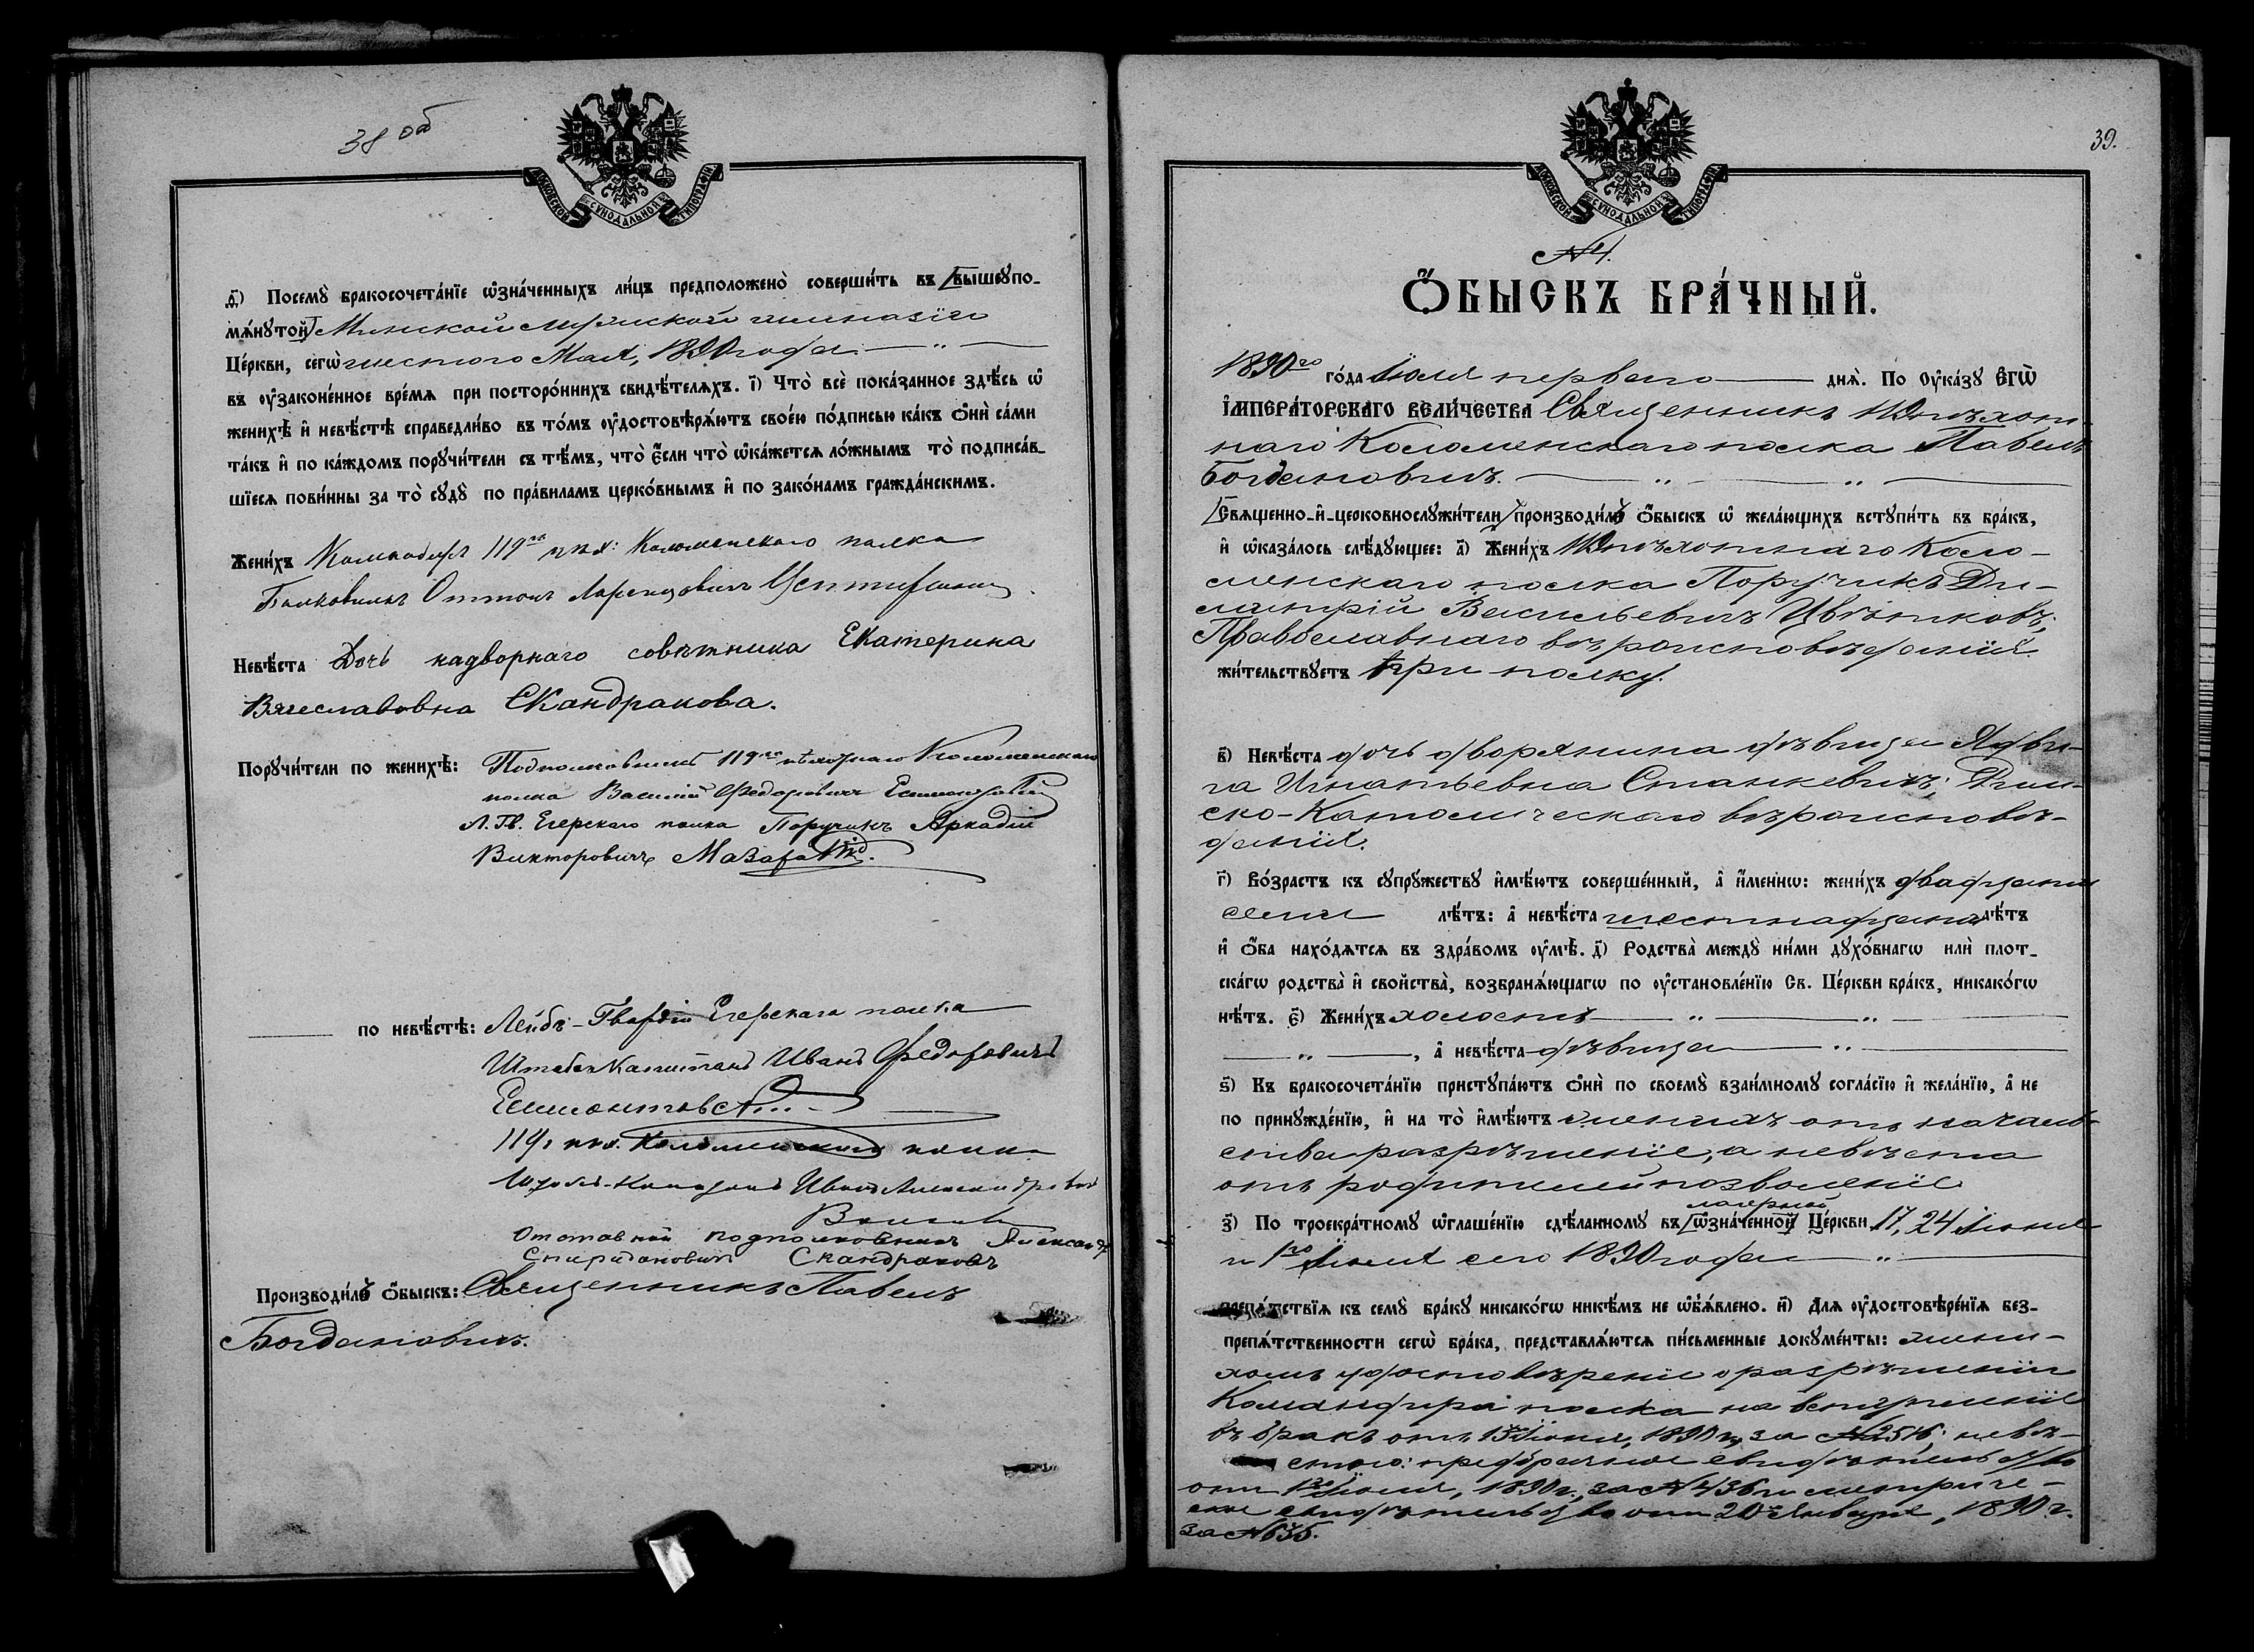 38 об
МОСКОВСКОЙ СѴНОДАЛЬНОЙ ТИПОГРАФІИ
д҃) Посемꙋ̀ бракосочета́нїе ѡ҆зна́ченныхъ ли́цъ предположено̀ соверши́ть въ [вышеꙋпо-
мѧ́нꙋтой] Минской мужской гимназіи
Це́ркви, сегѡ̀ шестого Мая, 1890 года
въ ᲂу҆законе́нное вре́мѧ при посторо́ннихъ свидѣ́телѧхъ. і҃) Что̀ всѐ пока́занное здѣ́сь ѡ҆
женихѣ̀ и҆ невѣ́стѣ справедли́во въ то́мъ ᲂу҆достовѣрѧ́ютъ свое́ю по́дписью ка́къ ѻ҆нѝ са́ми
та́къ и҆ по ка́ждомъ порꙋчи́тели съ тѣ́мъ, что̀ є҆́сли что̀ ѡ҆ка́жетсѧ ло́жнымъ то̀ подписа́в-
шїесѧ пови́нны за то̀ сꙋдꙋ̀ по пра́виламъ церко́внымъ и҆ по зако́намъ гражда́нскимъ.
Жени́хъ Командиръ 119го пѣх: Коломенскаго полка
Полковникъ Оттонъ Лаврентьевичъ
Невѣ́ста Дочь надворнаго совѣтника Екатерина
Вячеславовна Скандракова.
Порꙋчи́тели по женихѣ̀: Подполковникъ 119го пѣхотнаго Коломенскаго
полка Василій Федоровичъ
Л. Гв. Егерскаго полка Поручикъ Аркадій
Викторовичъ
по невѣ́стѣ: Лейбъ-Гвардіи Егерскаго полка
Штабсъ Капитанъ Иванъ Федоровичъ
119го пѣх. Коломенскаго полка
Штабсъ-Капитанъ Иванъ Александровъ
Отставной подполковникъ Александръ
Спиридоновичъ Скандраковъ
Производи́лъ ѻ҆́быскъ: Священникъ Павелъ
Богдановичъ.
39.
МОСКОВСКОЙ СѴНОДАЛЬНОЙ ТИПОГРАФІИ
№ 4.
Ѻ҆́БЫСКЪ БРА́ЧНЫЙ.
1890го го́да Іюля перваго днѧ̀. По Оу҆ка́зꙋ Є҆ГѠ̀
І҆МПЕРА́ТОРСКАГО ВЕЛИ́ЧЕСТВА Священникъ 119 пѣхот-
наго Коломенскаго полка Павелъ
Богдановичъ.
[Свѧщенно-и҆-церковнослꙋжи́тели] производи́лъ ѻ҆́быскъ ѡ҆ жела́ющихъ встꙋпи́ть въ бра́къ,
и҆ ѡ҆каза́лось слѣ́дꙋющее: а҃) Жени́хъ 119 пѣхотнаго Коло-
менскаго полка Поручикъ Ди-
митрій Васильевичъ Цвѣтковъ;
Православнаго вѣроисповѣданія.
жи́тельствꙋетъ при полку.
в҃) Невѣ́ста дочь дворянина дѣвица Ядви-
га Игнатьевна Станкевичъ; Рим-
ско-Католическаго вѣроисповѣ-
данія.
г҃) Во́зрастъ къ сꙋпрꙋ́жествꙋ и҆мѣ́ютъ соверше́нный, а҆ и҆́меннѡ: жени́хъ двадцати
семи лѣ́тъ: а҆ невѣ́ста шестнадцати лѣ́тъ
и҆ ѻ҆́ба нахо́дѧтсѧ въ здра́вомъ ᲂу҆мѣ̀. д҃) Родства̀ междꙋ̀ ни́ми дꙋхо́внагѡ илѝ плот-
ска́гѡ родства̀ и҆ сво́йства̀, возбранѧ́ющагѡ по ᲂу҆становле́нїю Св. Це́ркви бра́къ, никако́гѡ
нѣ́тъ. є҃) Жени́хъ холостъ
, а҆ невѣ́ста дѣвица
ѕ҃) Къ бракосочета́нїю пристꙋпа́ютъ ѻ҆нѝ по своемꙋ̀ взаи́мномꙋ согла́сїю и҆ жела́нїю, а҆ не
по принꙋжде́нїю, и҆ на то̀ и҆мѣ́ютъ женихъ отъ началь-
ства разрѣшеніе, а невѣста
отъ родителей позволеніе
лагерной
з҃) По троекра́тномꙋ ѡ҆глаше́нїю сдѣ́ланномꙋ въ [ѡ҆зна́ченной] Це́ркви 17, 24 Іюня
и 1го Іюля сего 1890 года
препѧ́тствїѧ къ семꙋ̀ бра́кꙋ никако́гѡ никѣ́мъ не ѡ҆б̾ѧ́влено. и҃) Для ᲂу҆достовѣре́нїѧ без-
препѧ́тственности сегѡ̀ бра́ка, представлѧ́ютсѧ пи́сьменные докꙋме́нты: жени-
хомъ удостовѣреніе о разрѣшеніи
Командира полка на вступленіе
въ бракъ отъ 15 Іюня, 1890 г., за № 2516; невѣ-
стою: предбрачное свидѣтельство
отъ 1го Іюля, 1890 г., за № 436 и метриче-
ское свидѣтельство отъ 20 Января, 1890 г.
за № 635.